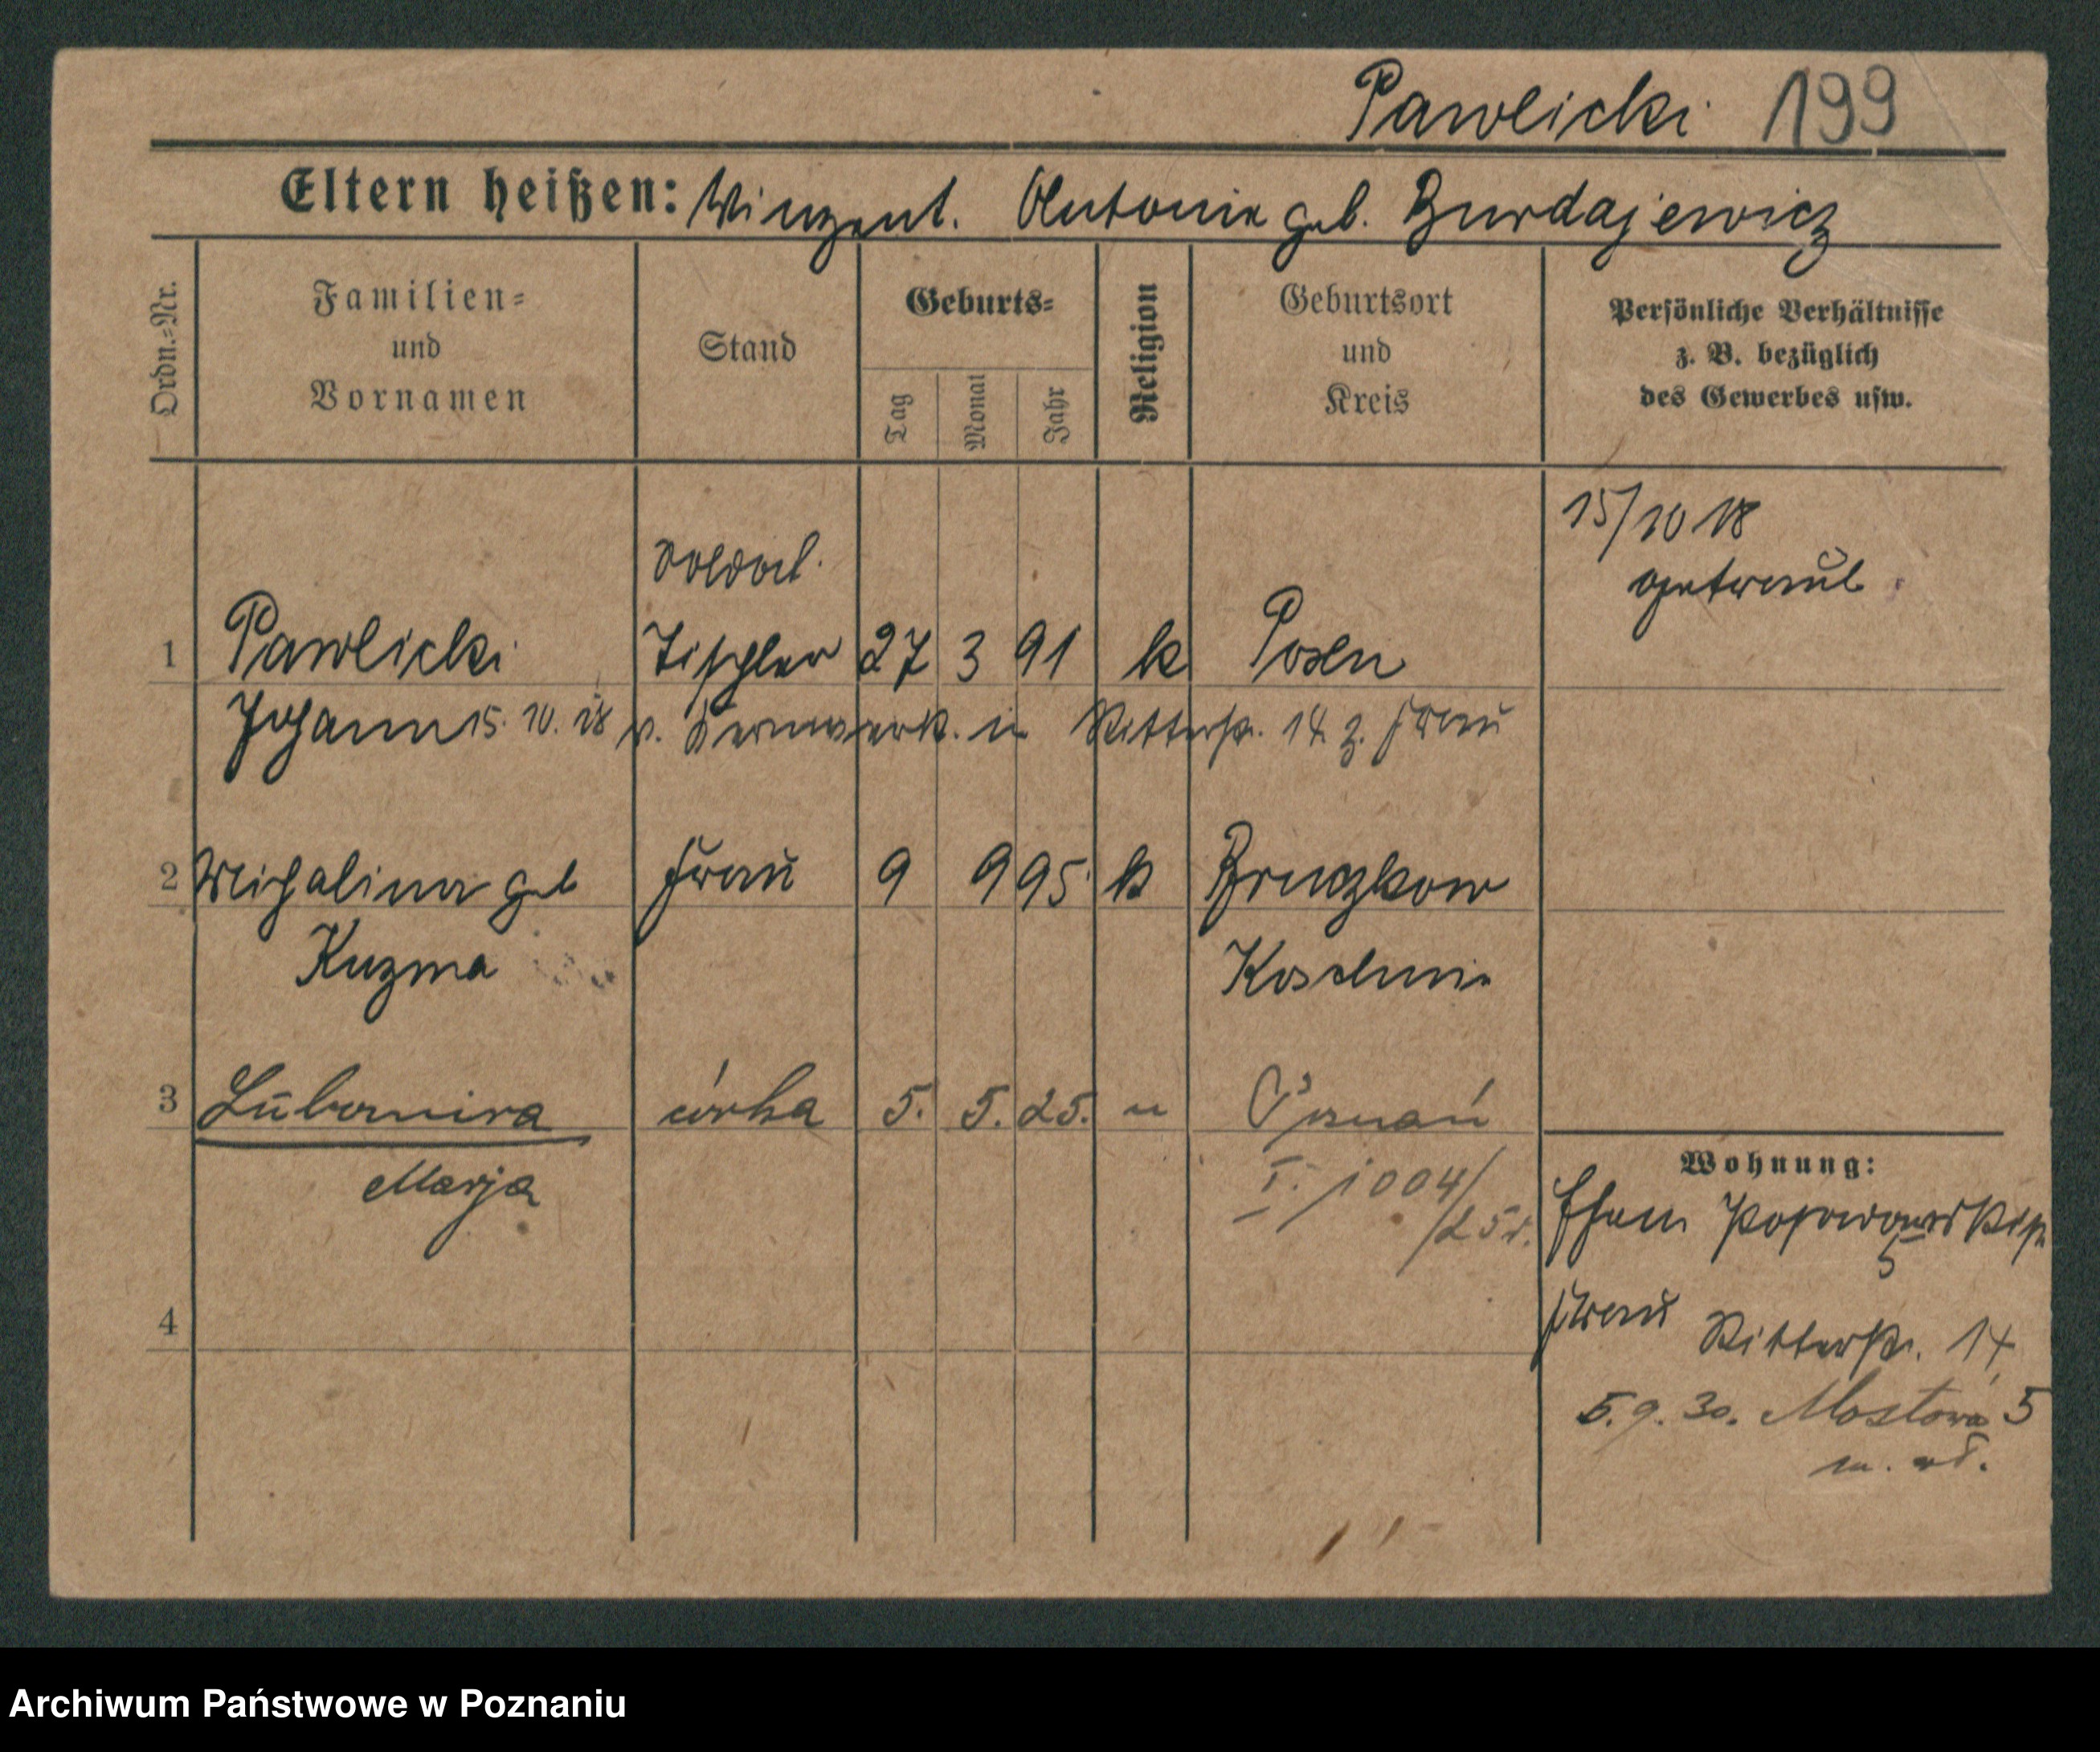 Pawlicki 199
Eltern heißen: Winzent. Antonie geb. Burdajewicz
Ordn.-Nr.
Familien-
und
Vornamen
Stand
Geburts-
Tag
Monat
Jahr
Religion
Geburtsort
und
Kreis
Persönliche Verhältnisse
z. B. bezüglich
des Gewerbes usw.
15/10 18
getraut
Soldat.
1 Pawlicki Tischler 27 3 91 k Posen
Johann 15. 10. 18 v. Kernwerk. in Ritterstr. 14 z. Frau
2 Michalina geb Frau 9 9 95 k Bruczkow
Kuzma Koschmin
3 Lubomira córka 5. 5. 25. " Poznań
Marja I. 1004/
/25r.
Wohnung:
4
Frau Ritterstr. 14
5.9.30. Mostowa 5